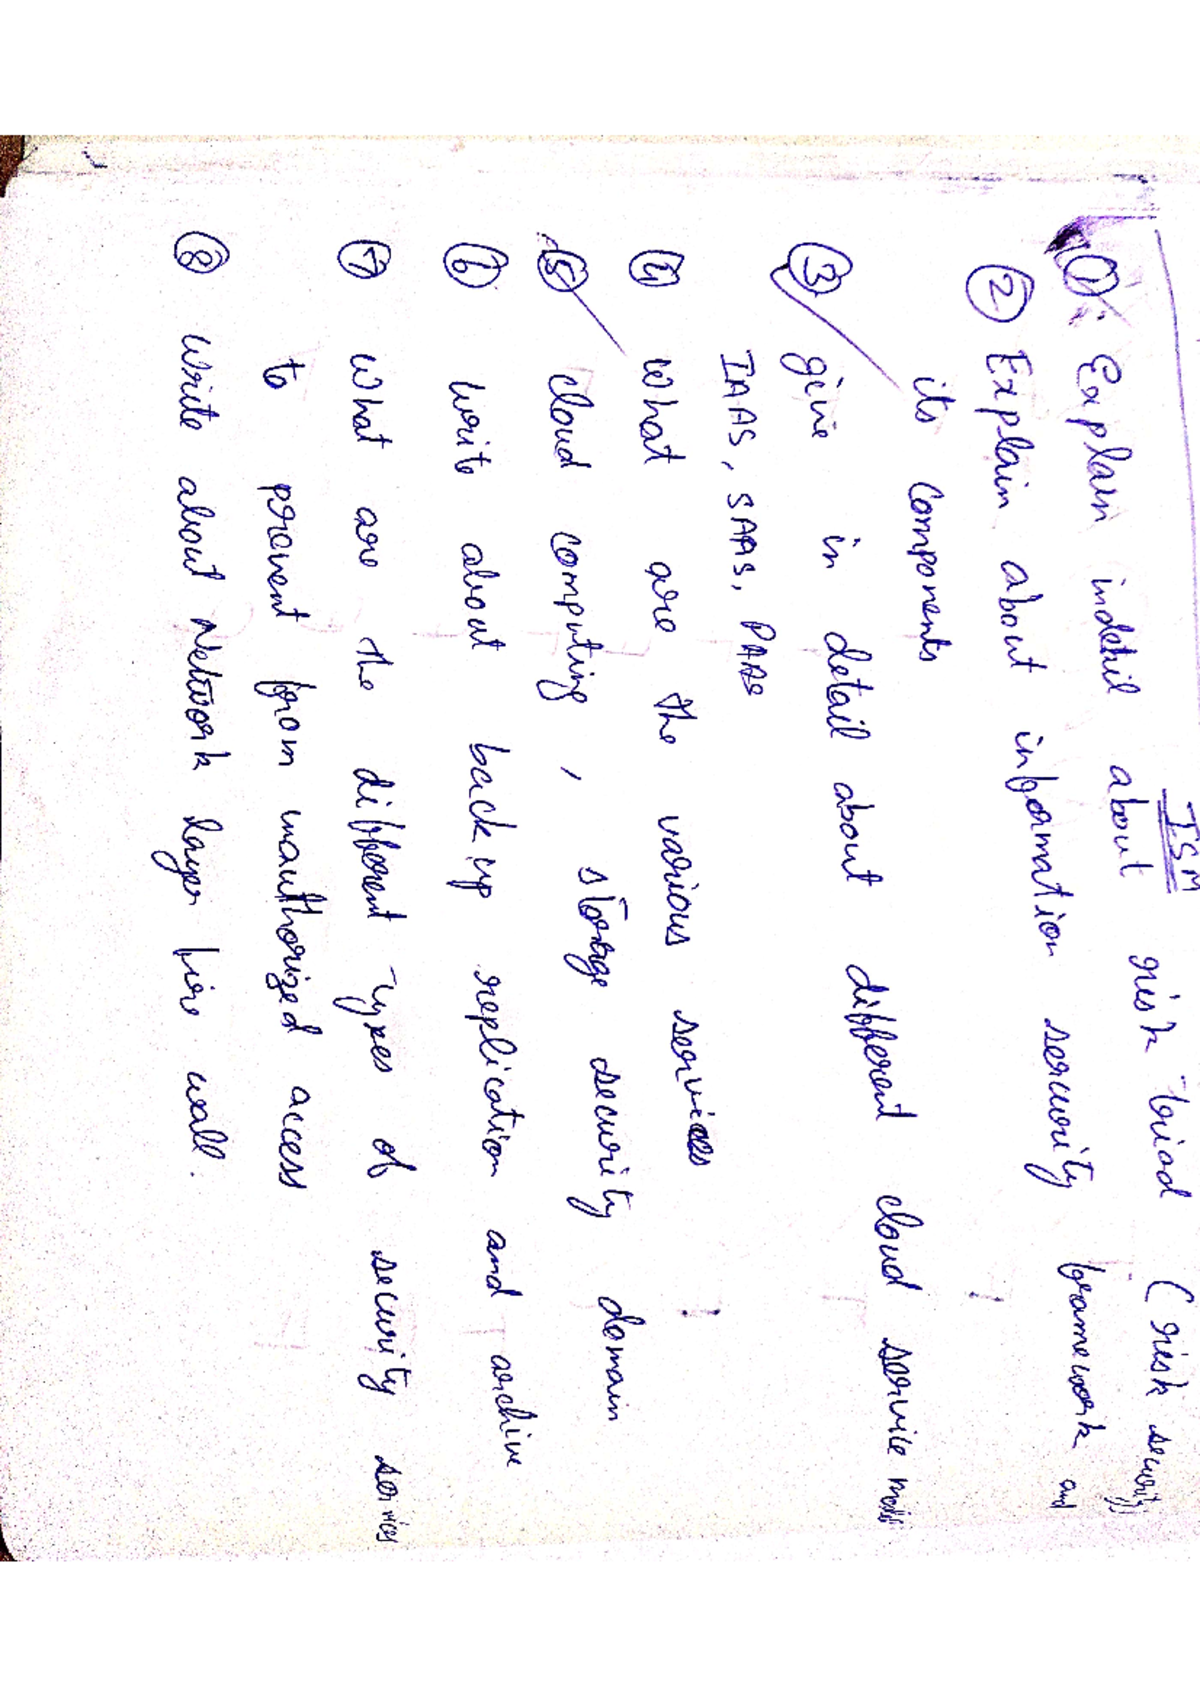 ISM
① Explain indetail about risk triad (risk security)
② Explain about information security framework and
its components
③ give in detail about different cloud service models
IAAS, SAAS, PAAS
④ What are the various services
⑤ cloud computing, storage security domain
⑥ write about back up replication and archive
⑦ what are the different types of security services
to prevent from unauthorized access
⑧ write about Network layer fire wall.